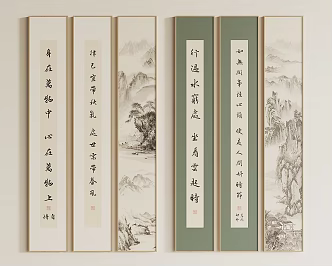 身在萬物中 心在萬物上
律己宜帶秋氣 處世需帶春風
行到水窮處 坐看雲起時
如無閑事挂心頭 便是人間好時節